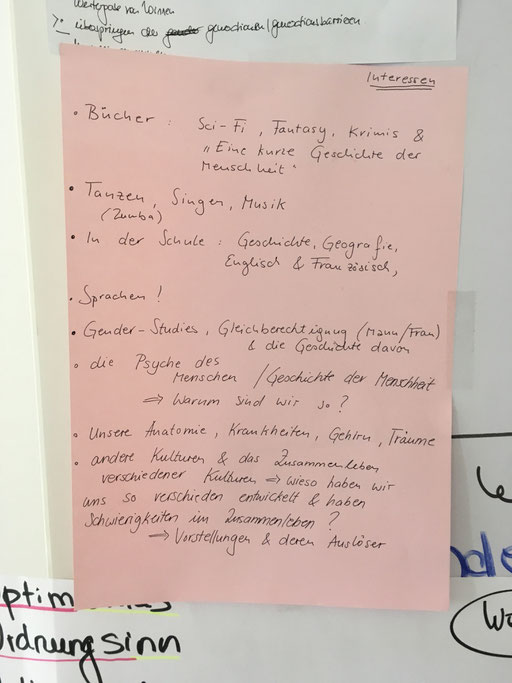 überspringen des generationen/generationsbarrieren
Interessen
• Bücher : Sci-Fi, Fantasy, Krimis &
„Eine kurze Geschichte der
Menschheit"
• Tanzen, Singen, Musik
(Zumba)
• In der Schule : Geschichte, Geografie,
Englisch & Französisch,
• Sprachen !
• Gender-Studies, Gleichberechtigung (Mann/Frau)
& die Geschichte davon
• die Psyche des
Menschen / Geschichte der Menschheit
⇒ Warum sind wir so ?
• Unsere Anatomie, Krankheiten, Gehirn, Träume
• andere Kulturen & das Zusammenleben
verschiedener Kulturen ⇒ wieso haben wir
uns so verschieden entwickelt & haben
Schwierigkeiten im Zusammenleben ?
⇒ Vorstellungen & deren Auslöser
rdnungssinn